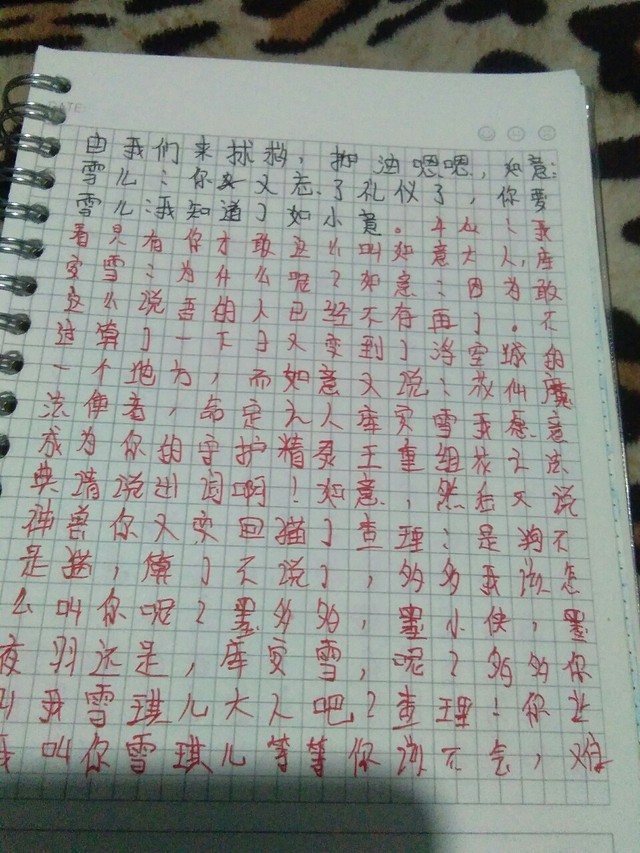 DATE:
由我们来拯救,加油嗯嗯,如意:
雪儿:你又忘了礼仪了,你要
雪儿:我知道了如小意。 我
看只有你才敢这么叫如意大人,库
安雪:为什么呢?如意:因为敢
这么说吾的人已经不存再了。不
过算了一下子又变到了浮空城的
一个地方,而如意又说:被仙魔
法使者,命定之人库安雪我愿意
成为你的守护精灵王重组被之法
典请说出词啊!如意,然后又说
神兽你又变回猫了查理:是狗不
是猫,算了不说了,多多我该怎
么叫你呢?墨多多,墨小侠,墨
夜羽还是,库安雪,呢?多多你
叫我雪琪儿大人吧?查理!你让
我叫你雪琪儿等等你说不气,又你